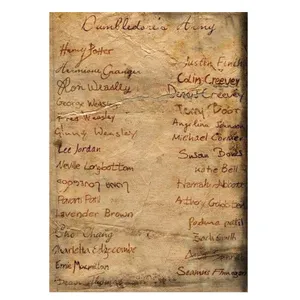 Dumbledore's Army
Harry Potter
Hermione Granger
Ron Weasley
George Weasley
Fred Weasley
Ginny Weasley
Lee Jordan
Neville Longbottom
Parvati Patil
Lavender Brown
Cho Chang
Marietta Edgecombe
Ernie Macmillan
Justin Finch
Colin Creevey
Dennis Creevey
Terry Boot
Angelina Johnson
Michael Corner
Susan Bones
Katie Bell
Hannah Abbott
Anthony Goldstein
Padma Patil
Zacharias Smith
Seamus Finnigan